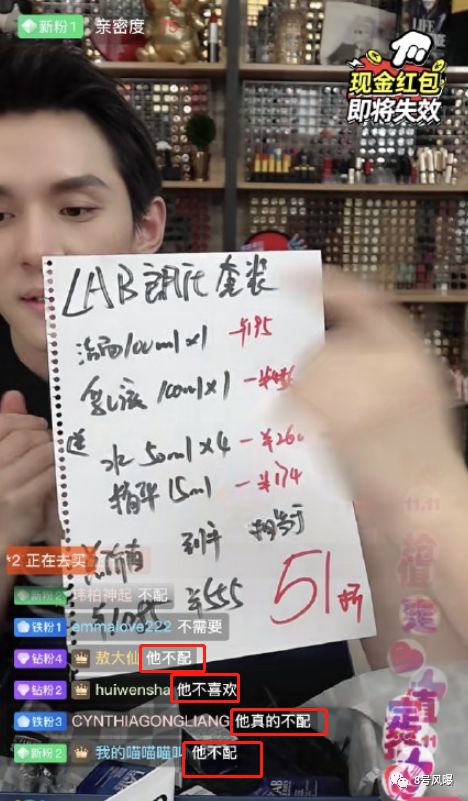 新粉1 亲密度 75
现金红包
即将失效
LAB 套装
洁面100ml×1 ¥195
乳液100ml×1
送 水50ml×4 ¥260
精华15ml ¥174
到手 相当于
¥555 51折
*2 正在去买
新粉2 玮柏神起 不配
铁粉1 emmalove222 不需要
钻粉4 敖大仙 他不配
钻粉2 huiwensha 他不喜欢
铁粉3 CYNTHIAGONGLIANG 他真的不配
新粉2 我的喵喵喵叫 他不配
11.11
8号风曝